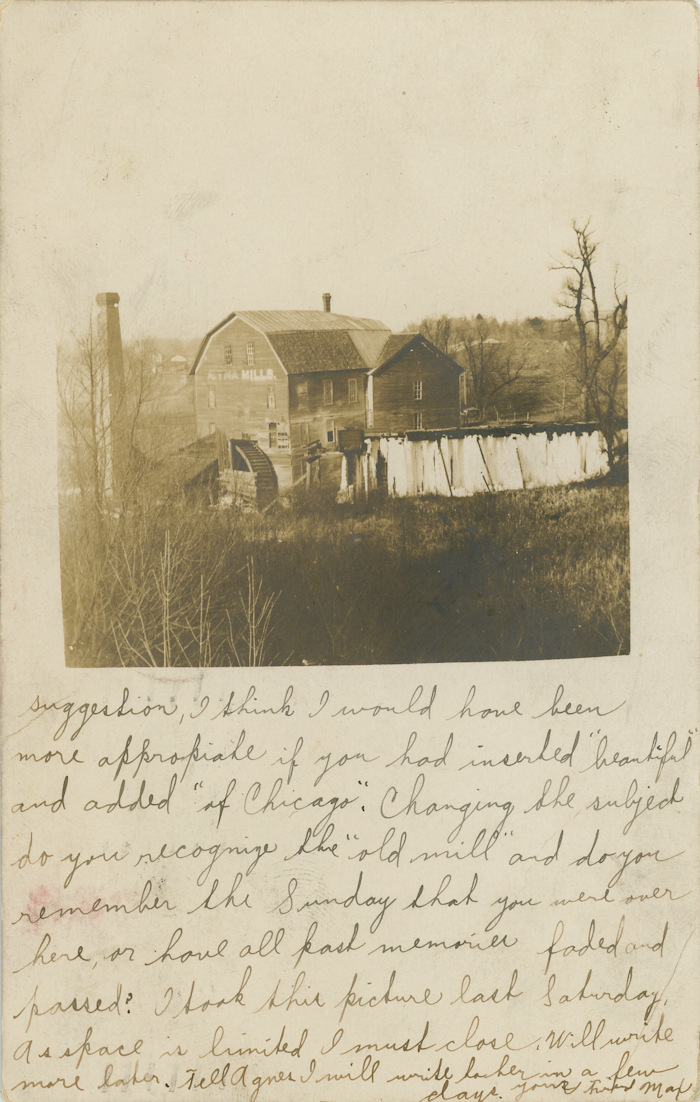 MILLS.
suggestion, I think I would have been
more appropiate if you had inserted "beautiful"
and added "of Chicago". Changing the subject
do you recognize the "old mill" and do you
remember the Sunday that you were over
here, or have all past memories faded and
passed? I took this picture last Saturday.
As space is limited I must close. Will write
more later. Tell Agnes I will write to her in a few
days. yours Max